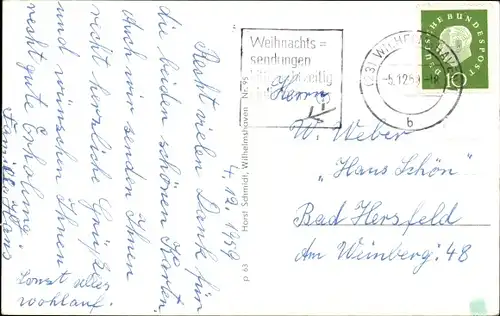 4.12.1959
Recht vielen Dank für
die beiden schönen Karten.
Auch wir senden Ihnen
recht herzliche Grüße
und wünschen Ihnen
recht gute Erholung.
Familie Hans
Sonst alles
wohlauf.
Horst Schmidt, Wilhelmshaven Nr. 95
p 63
Weihnachts=
sendungen
(23) WILHELMSHAVEN
-5.12.59
b
DEUTSCHE BUNDESPOST
10
Herrn
W. Weber
"Haus Schön"
Bad Hersfeld
Am Weinberg 48